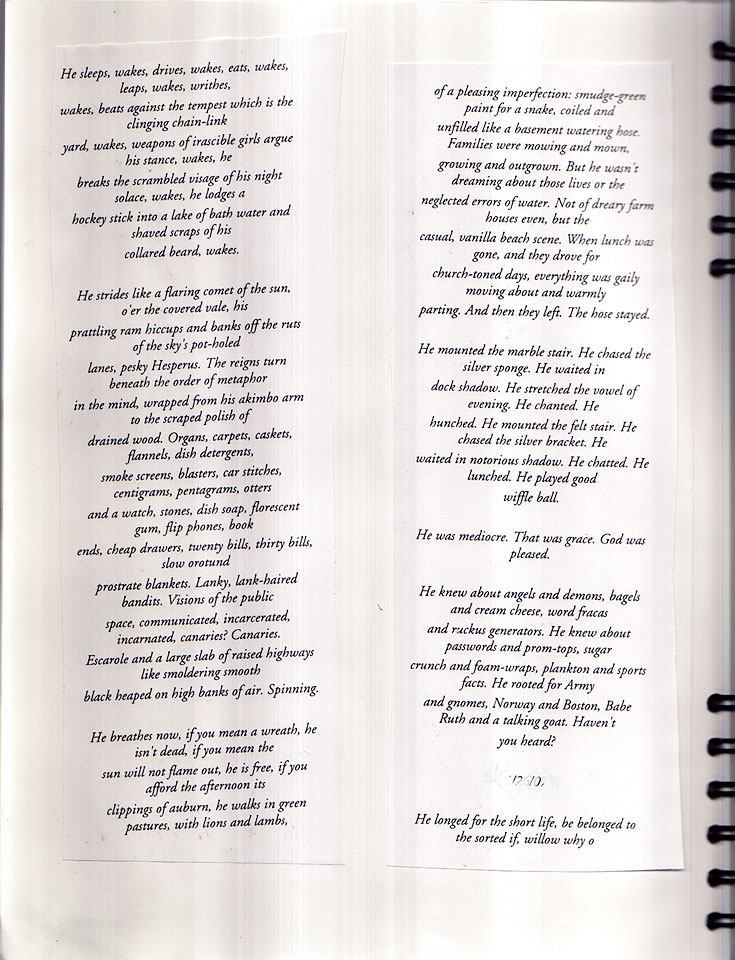 He sleeps, wakes, drives, wakes, eats, wakes,
leaps, wakes, writhes,
wakes, beats against the tempest which is the
clinging chain-link
yard, wakes, weapons of irascible girls argue
his stance, wakes, he
breaks the scrambled visage of his night
solace, wakes, he lodges a
hockey stick into a lake of bath water and
shaved scraps of his
collared beard, wakes.
He strides like a flaring comet of the sun,
o'er the covered vale, his
prattling ram hiccups and banks off the ruts
of the sky's pot-holed
lanes, pesky Hesperus. The reigns turn
beneath the order of metaphor
in the mind, wrapped from his akimbo arm
to the scraped polish of
drained wood. Organs, carpets, caskets,
flannels, dish detergents,
smoke screens, blasters, car stitches,
centigrams, pentagrams, otters
and a watch, stones, dish soap, florescent
gum, flip phones, book
ends, cheap drawers, twenty bills, thirty bills,
slow orotund
prostrate blankets. Lanky, lank-haired
bandits. Visions of the public
space, communicated, incarcerated,
incarnated, canaries? Canaries.
Escarole and a large slab of raised highways
like smoldering smooth
black heaped on high banks of air. Spinning.
He breathes now, if you mean a wreath, he
isn't dead, if you mean the
sun will not flame out, he is free, if you
afford the afternoon its
clippings of auburn, he walks in green
pastures, with lions and lambs,
of a pleasing imperfection: smudge-green
paint for a snake, coiled and
unfilled like a basement watering hose.
Families were mowing and mown,
growing and outgrown. But he wasn't
dreaming about those lives or the
neglected errors of water. Not of dreary farm
houses even, but the
casual, vanilla beach scene. When lunch was
gone, and they drove for
church-toned days, everything was gaily
moving about and warmly
parting. And then they left. The hose stayed.
He mounted the marble stair. He chased the
silver sponge. He waited in
dock shadow. He stretched the vowel of
evening. He chanted. He
hunched. He mounted the felt stair. He
chased the silver bracket. He
waited in notorious shadow. He chatted. He
lunched. He played good
wiffle ball.
He was mediocre. That was grace. God was
pleased.
He knew about angels and demons, bagels
and cream cheese, word fracas
and ruckus generators. He knew about
passwords and prom-tops, sugar
crunch and foam-wraps, plankton and sports
facts. He rooted for Army
and gnomes, Norway and Boston, Babe
Ruth and a talking goat. Haven't
you heard?
He longed for the short life, be belonged to
the sorted if, willow why o